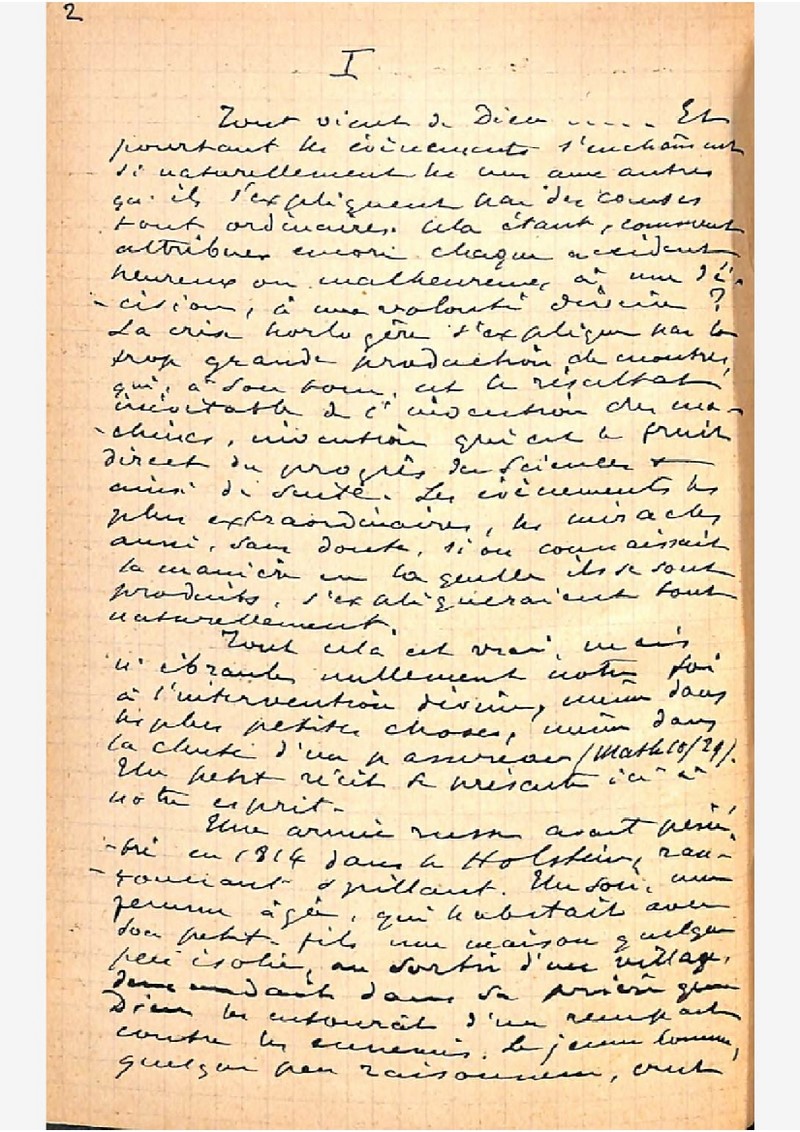 2
I
Tout vient de Dieu ..... Et
pourtant les évènements s'enchaînent
si naturellement les uns aux autres
qu'ils s'expliquent par des causes
tout ordinaires. Cela étant, comment
attribuer encore chaque accident
heureux ou malheureux, à une dé-
-cision, à une volonté divine ?
La crise horlogère s'explique par la
trop grande production de montres,
qui, à son tour, est le résultat
inévitable de l'invention des ma-
-chines, invention qui est le fruit
direct du progrès des sciences &
ainsi de suite. Les évènements les
plus extraordinaires, les miracles
aussi, sans doute, si on connaissait
la manière en laquelle ils se sont
produits, s'expliqueraient tout
naturellement.
Tout cela est vrai, mais
n'ébranle nullement notre foi
à l'intervention divine, même dans
les plus petites choses, même dans
la chute d'un passereau (Math 10/29).
Un petit récit se présente ici à
notre esprit.
Une armée russe avait péné-
-tré en 1814 dans le Holstein, ran-
-çonnant & pillant. Un soir, une
femme âgée, qui habitait avec
son petit-fils une maison quelque
peu isolée, au sortir d'un village,
demandait dans sa prière que
Dieu les entourât d'un rempart
contre les ennemis. Le jeune homme,
quelque peu raisonneur, crut